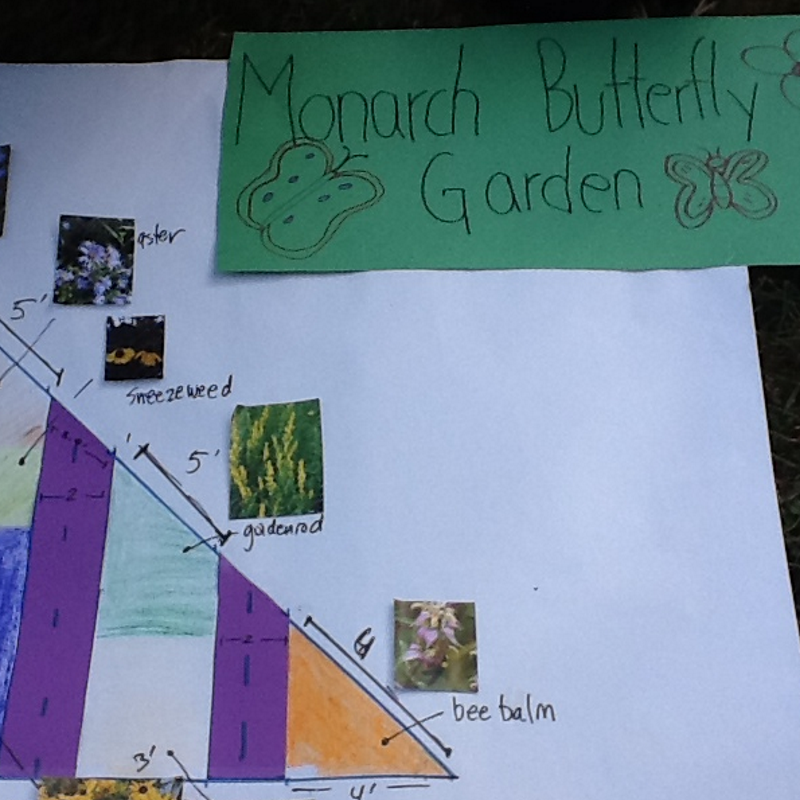 Monarch Butterfly
Garden
aster
5'
sneezeweed
5'
goldenrod
2
2
bee balm
3'
4'